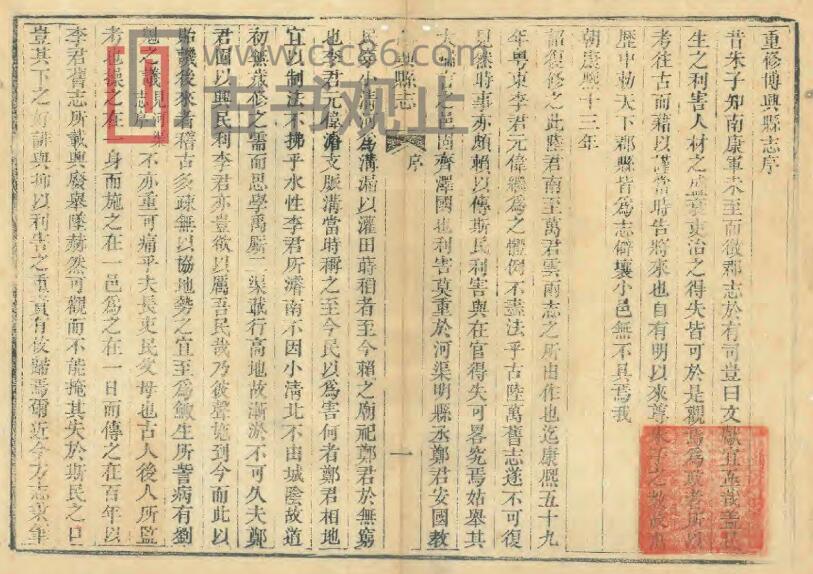 重修博興縣志序
昔朱子知南康軍未至而徵郡志於有司豈曰文獻宜爾哉蓋民
生之利害人材之盛衰吏治之得失皆可於是觀焉為政者所以
考往古而藉以鏡當時告將來也自有明以來尊朱子之教故有
歷中勅天下郡縣皆為志僻壤小邑無不具焉我
朝康熙十三年
詔復修之此陸君南至萬君雲兩志之所由作也迄康熙五十九
年粵東李君元偉繼為之體例不盡法乎古陸萬舊志遂不可復
見然時事亦頗賴以傳斯民利害與在官得失可畧究焉姑舉其
大端言之邑固齊澤國也利害莫重於河渠明縣丞鄭君安國教
縣志
序
一
民穿小清河為溝洫以灌田蒔稻者至今賴之廟祀鄭君於無窮
也李君元偉濬支脈溝當時稱之至今民以為害何者鄭君相地
宜以制法不拂乎水性李君所濬南不因小清北不由城陰故道
初無歲修之需而思學禹厮二渠載行高地故漸淤不可久夫鄭
君固以興民利李君亦豈欲以厲吾民哉乃彼聲施到今而此以
貽譏後來者稽古多疎無以協地勢之宜至為敏生所訾病有劉
之議見河渠
志序
不亦重可痛乎夫長吏民父母也古人後人所監
考也操之在一身而施之在一邑為之在一日而傳之在百年以
李君舊志所載興廢舉墜赫然可觀而不能掩其失於斯民之口
豈其下之好誹與抑以利害之
有攸歸焉爾近今方志
www.cjc86.com
古书观止